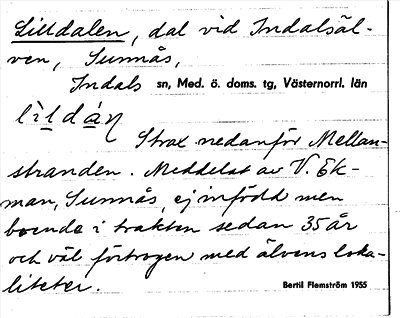 Lilldalen, dal vid Indalsäl-
ven, Sunnås,
Indals sn, Med. ö. doms. tg, Västernorrl. län
lìldáɳ
Strax nedanför Mellan-
stranden. Meddelat av V. Ek-
man, Sunnås, ej infödd men
boende i trakten sedan 35 år
och väl förtrogen med älvens loka-
liteter.
Bertil Flemström 1955